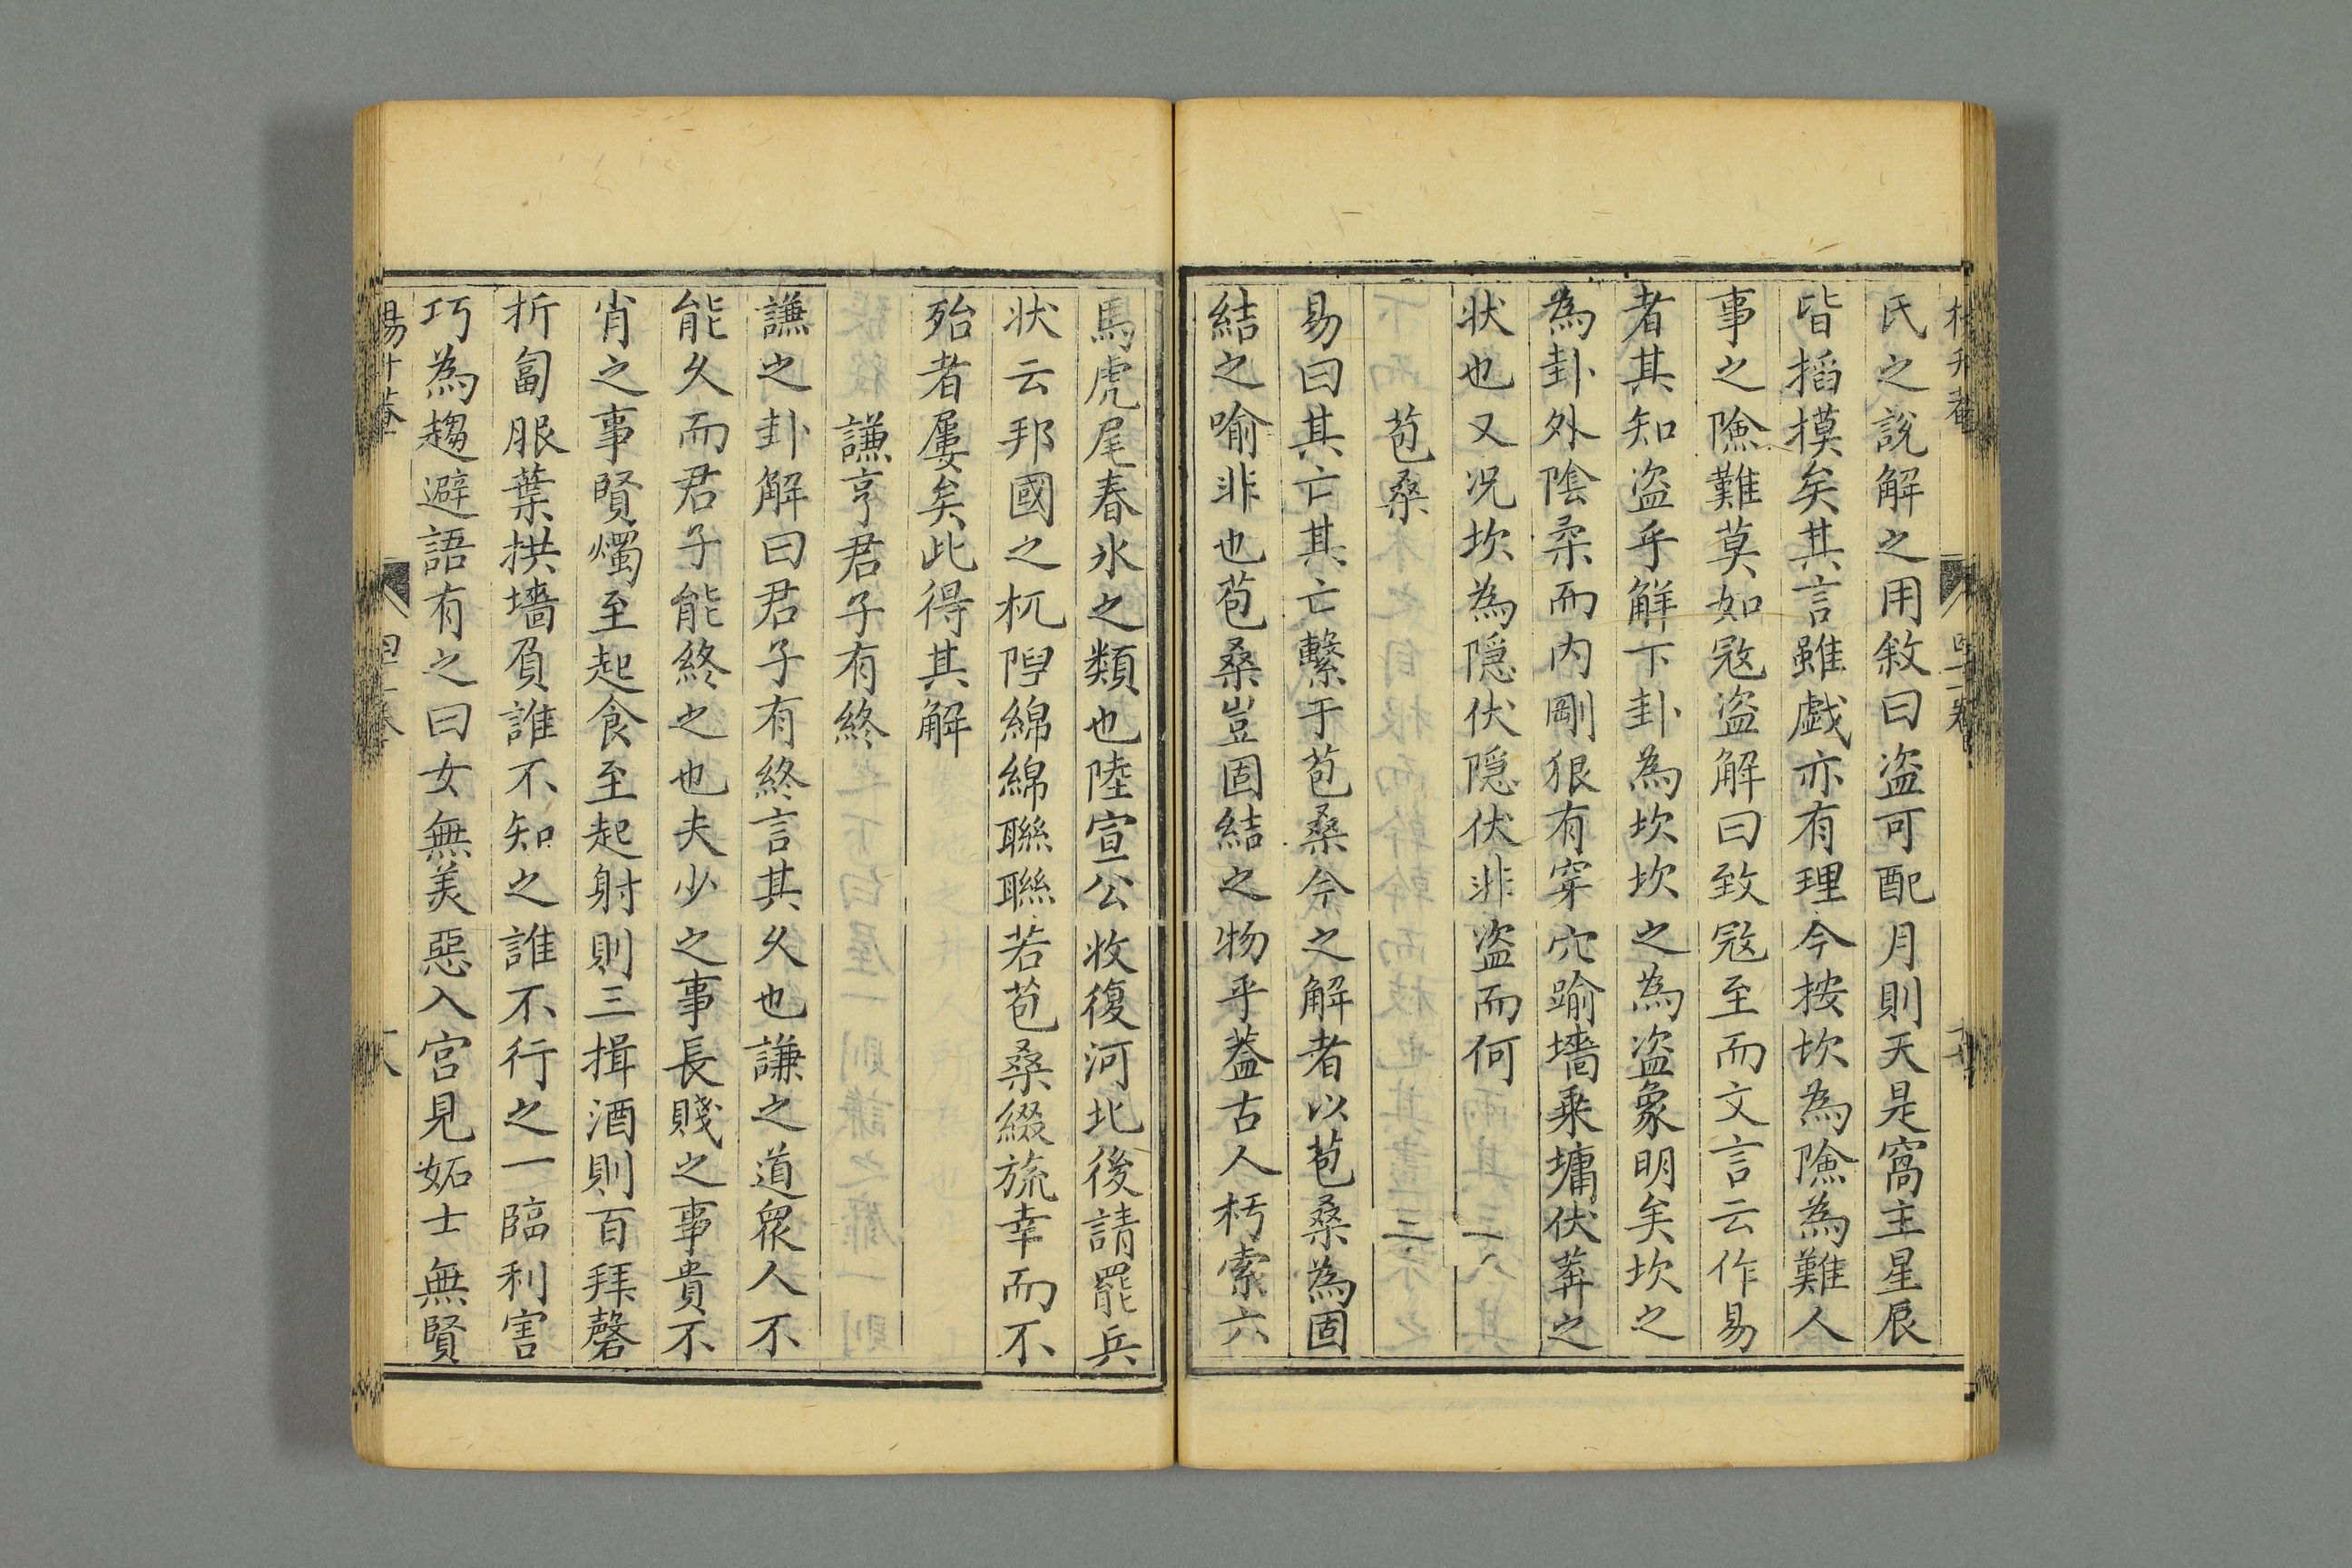 氏之說解之用敘曰盗可配月則天是窩主星辰
皆搯摸矣其言雖戯亦有理今按坎為險為難人
事之險難莫如宼盗解曰致宼至而文言云作易
者其知盗乎解下卦為坎坎之為盗象明矣坎之
為卦外陰柔而内剛狠有穿穴踰墻乗墉伏莽之
状也又况坎為隠伏隠伏非盗而何
苞桑
易曰其亡其亡繫于苞桑今之解者以苞桑為固
結之喻非也苞桑豈固結之物乎葢古人朽索六
馬虎尾春氷之類也陸宣公收復河北後請罷兵
状云邦國之杌隉綿綿聯聯若苞桑綴旒幸而不
殆者屢矣此得其解
謙亨君子有終
謙之卦解曰君子有終言其久也謙之道衆人不
能久而君子能終之也夫少之事長賤之事貴不
肖之事賢燭至起食至起射則三揖酒則百拜磬
折匐服葉拱墻負誰不知之誰不行之一臨利害
巧為趨避語有之曰女無美惡入宮見妬士無賢